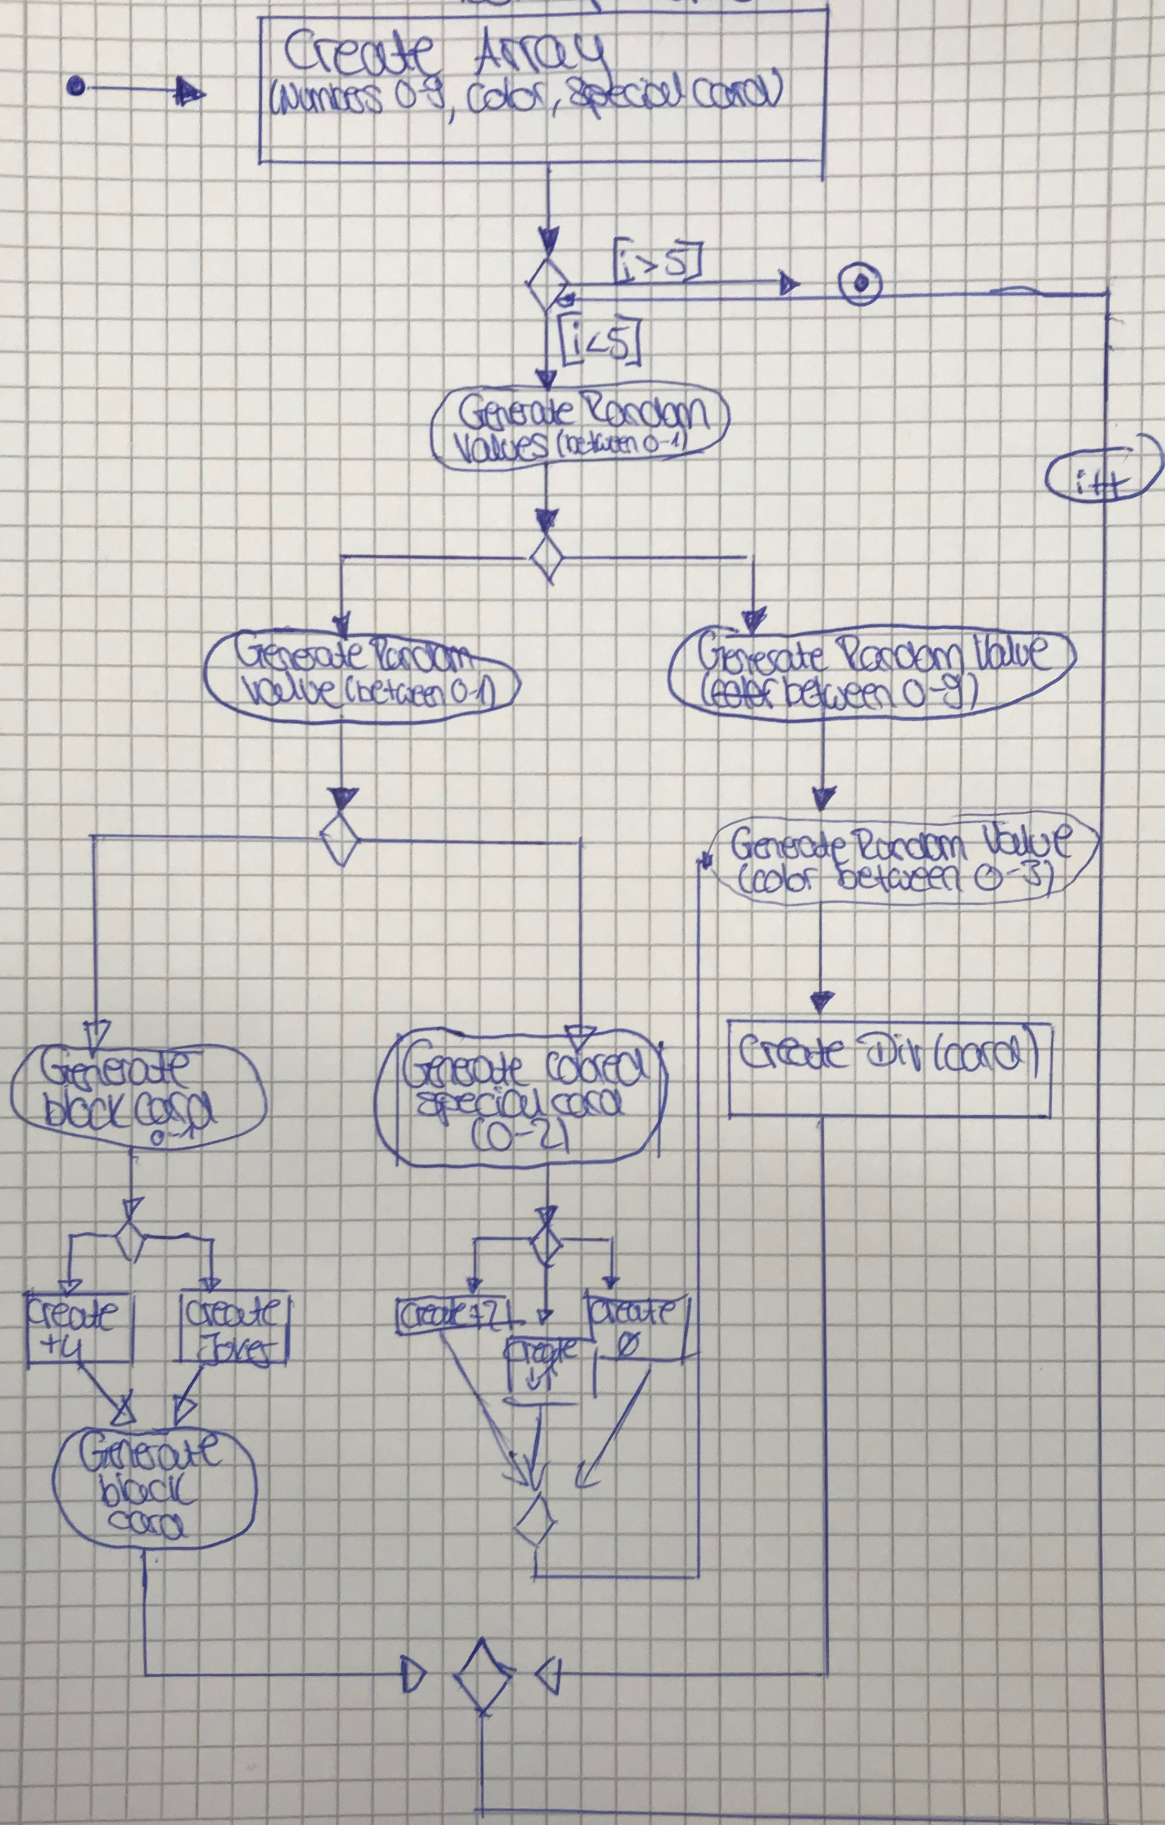 Create Array
(Numbers 0-9, Color, special card)
[i>5]
[i<5]
Generate Random
Values (between 0-1)
i++
Generate Random
value (between 0-1)
Generate Random Value
between 0-9)
Generate Random Value
(color between 0-3)
Generate
black card
0-1
Generate colored
special card
(0-2)
Create Div (card)
create
+4
create
Joker
create +2
create
↓↑
create
Ø
Generate
black
card